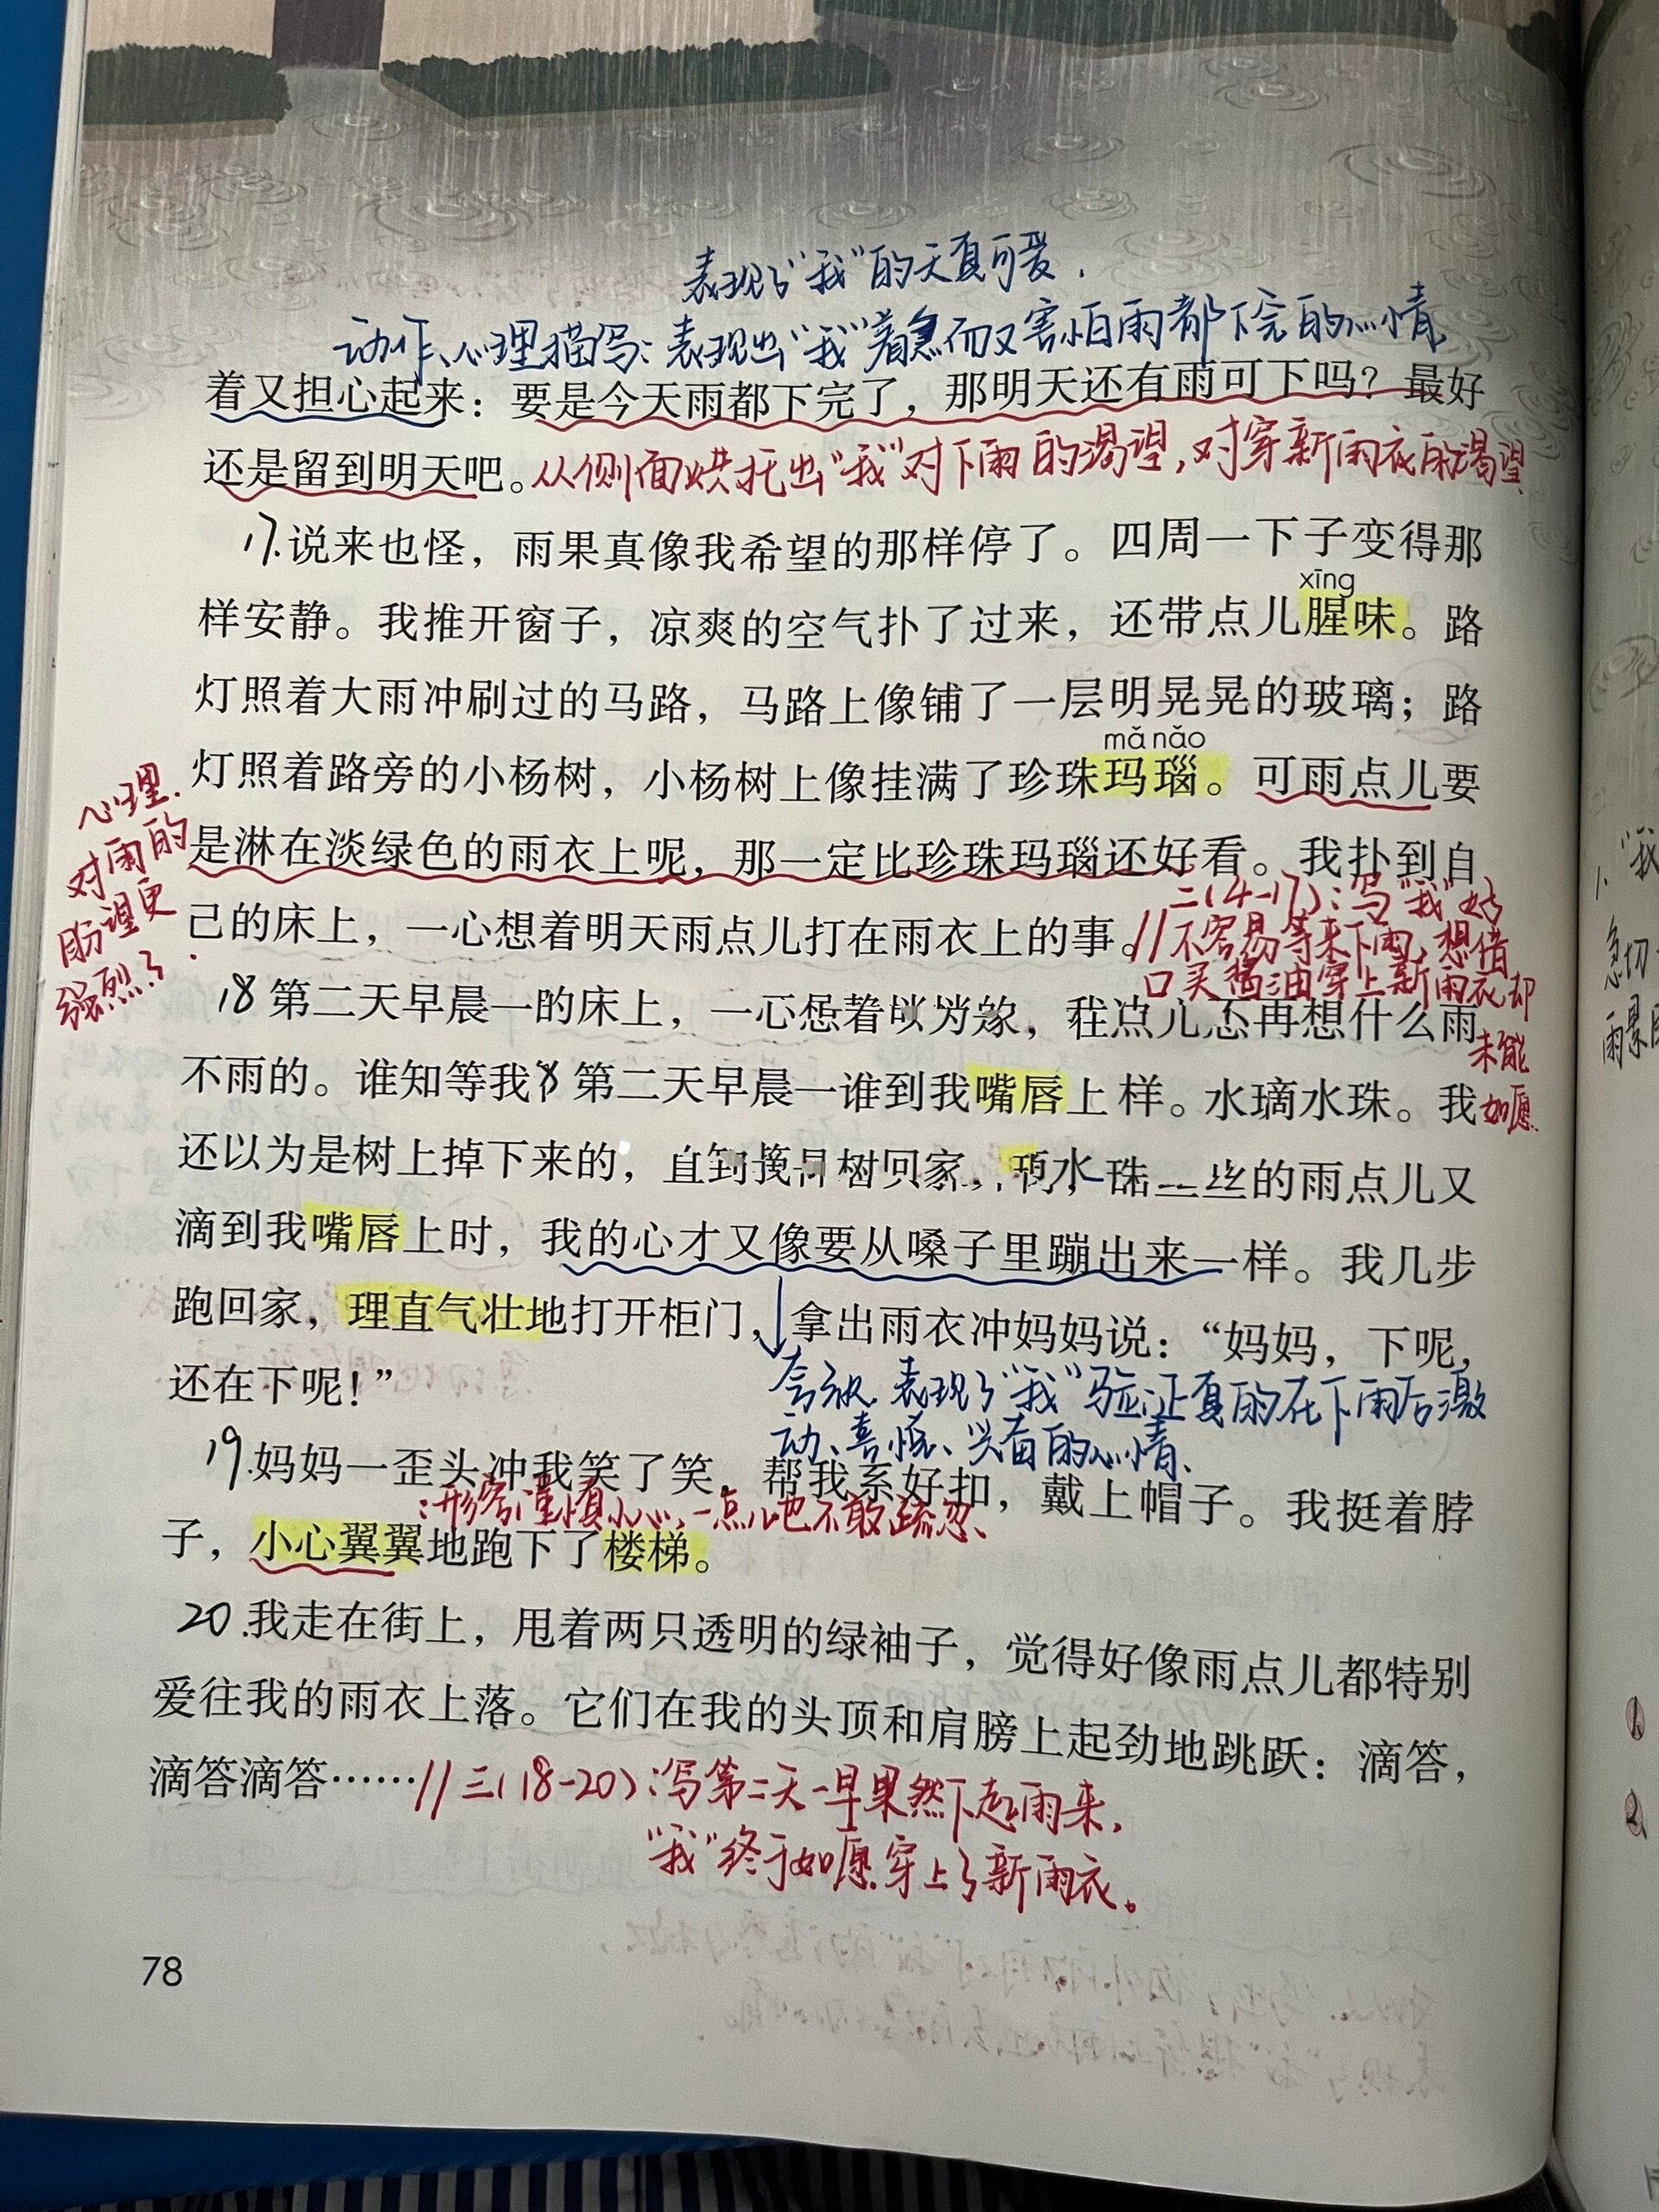 表现了“我”的天真可爱.
动作、心理描写：表现出“我”着急而又害怕雨都下完的心情
着又担心起来：要是今天雨都下完了，那明天还有雨可下吗？最好
还是留到明天吧。从侧面烘托出“我”对下雨的渴望，对穿新雨衣的渴望
17.说来也怪，雨果真像我希望的那样停了。四周一下子变得那
xīng
样安静。我推开窗子，凉爽的空气扑了过来，还带点儿腥味。路
灯照着大雨冲刷过的马路，马路上像铺了一层明晃晃的玻璃；路
mǎ nǎo
灯照着路旁的小杨树，小杨树上像挂满了珍珠玛瑙。可雨点儿要
是淋在淡绿色的雨衣上呢，那一定比珍珠玛瑙还好看。我扑到自
己的床上，一心想着明天雨点儿打在雨衣上的事。
心理.
对雨的
盼望更
强烈了.
//二(4-17)：写“我”好
不容易等来下雨，想借
口买酱油穿上新雨衣却
未能
如愿
18 第二天早晨一的床上，一心着，再想什么雨
不雨的。谁知等我 第二天早晨一谁到我嘴唇上 样。水璃水珠。我
还以为是树上掉下来的，回家，水珠 的雨点儿又
滴到我嘴唇上时，我的心才又像要从嗓子里蹦出来一样。我几步
跑回家，理直气壮地打开柜门，拿出雨衣冲妈妈说：“妈妈，下呢，
还在下呢！”
夸张.表现了“我”验证真的在下雨后激
动、喜悦、兴奋的心情.
19.妈妈一歪头冲我笑了笑，帮我系好扣，戴上帽子。我挺着脖
：形容谨慎小心，一点儿也不敢疏忽、
子，小心翼翼地跑下了楼梯。
20.我走在街上，甩着两只透明的绿袖子，觉得好像雨点儿都特别
爱往我的雨衣上落。它们在我的头顶和肩膀上起劲地跳跃：滴答，
滴答滴答……//三(18-20)：写第二天一早果然下起雨来，
“我”终于如愿穿上了新雨衣。
78
1、“我
急切
雨景